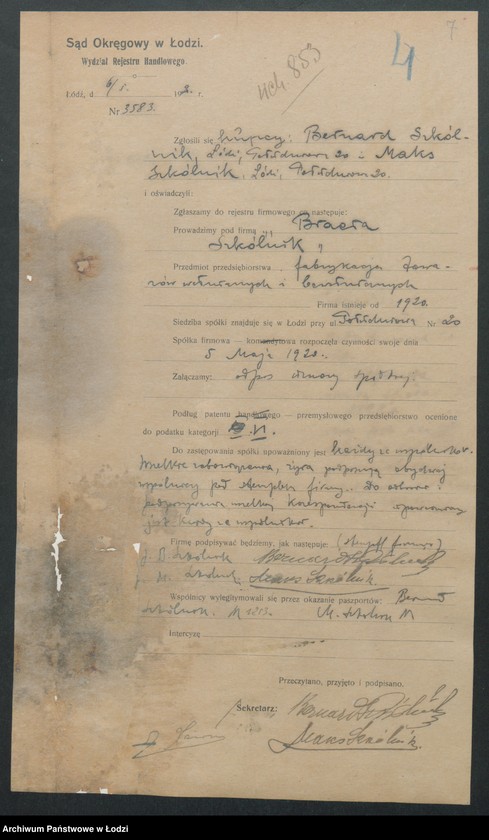 7
4
Sąd Okręgowy w Łodzi.
Wydział Rejestru Handlowego.
4ch. 853
Łódź, d. 6/V. 192 r.
Nr 3583.
Zgłosili się kupcy: Bernard Szkól-
nik, Łódź, Południowa 20 i Maks
Szkólnik, Łódź, Południowa 20.
i oświadczyli:
Zgłaszamy do rejestru firmowego co następuje:
Prowadzimy pod firmą „Bracia
Szkólnik"
Przedmiot przedsiębiorstwa fabrykacja towa-
rów wełnianych i bawełnianych
Firma istnieje od 1920.
Siedziba spółki znajduje się w Łodzi przy ul. Południowa Nr 20
Spółka firmowa — komandytowa rozpoczęła czynności swoje dnia
5 Maja 1920.
Załączamy: odpis umowy spółki.
Podług patentu handlowego — przemysłowego przedsiębiorstwo ocenione
do podatku kategorji VI.
Do zastępowania spółki upoważniony jest każdy ze wspólników.
Weksle zobowiązania, żyra podpisują obydwaj
wspólnicy pod stemplem firmy. Do odbioru i
podpisywania wszelkiej korespondencji upoważniony
jest każdy ze wspólników.
Firmę podpisywać będziemy, jak następuje: (stempel firmowy)
B. Szkólnik Bernard Szkólnik
M. Szkólnik Maks Szkólnik
Wspólnicy wylegitymowali się przez okazanie paszportów: Bernard
Szkólnik N 1213. M. Szkólnik N
Intercyzę
Przeczytano, przyjęto i podpisano.
Sekretarz: Bernard Szkólnik
Maks Szkólnik.
Archiwum Państwowe w Łodzi